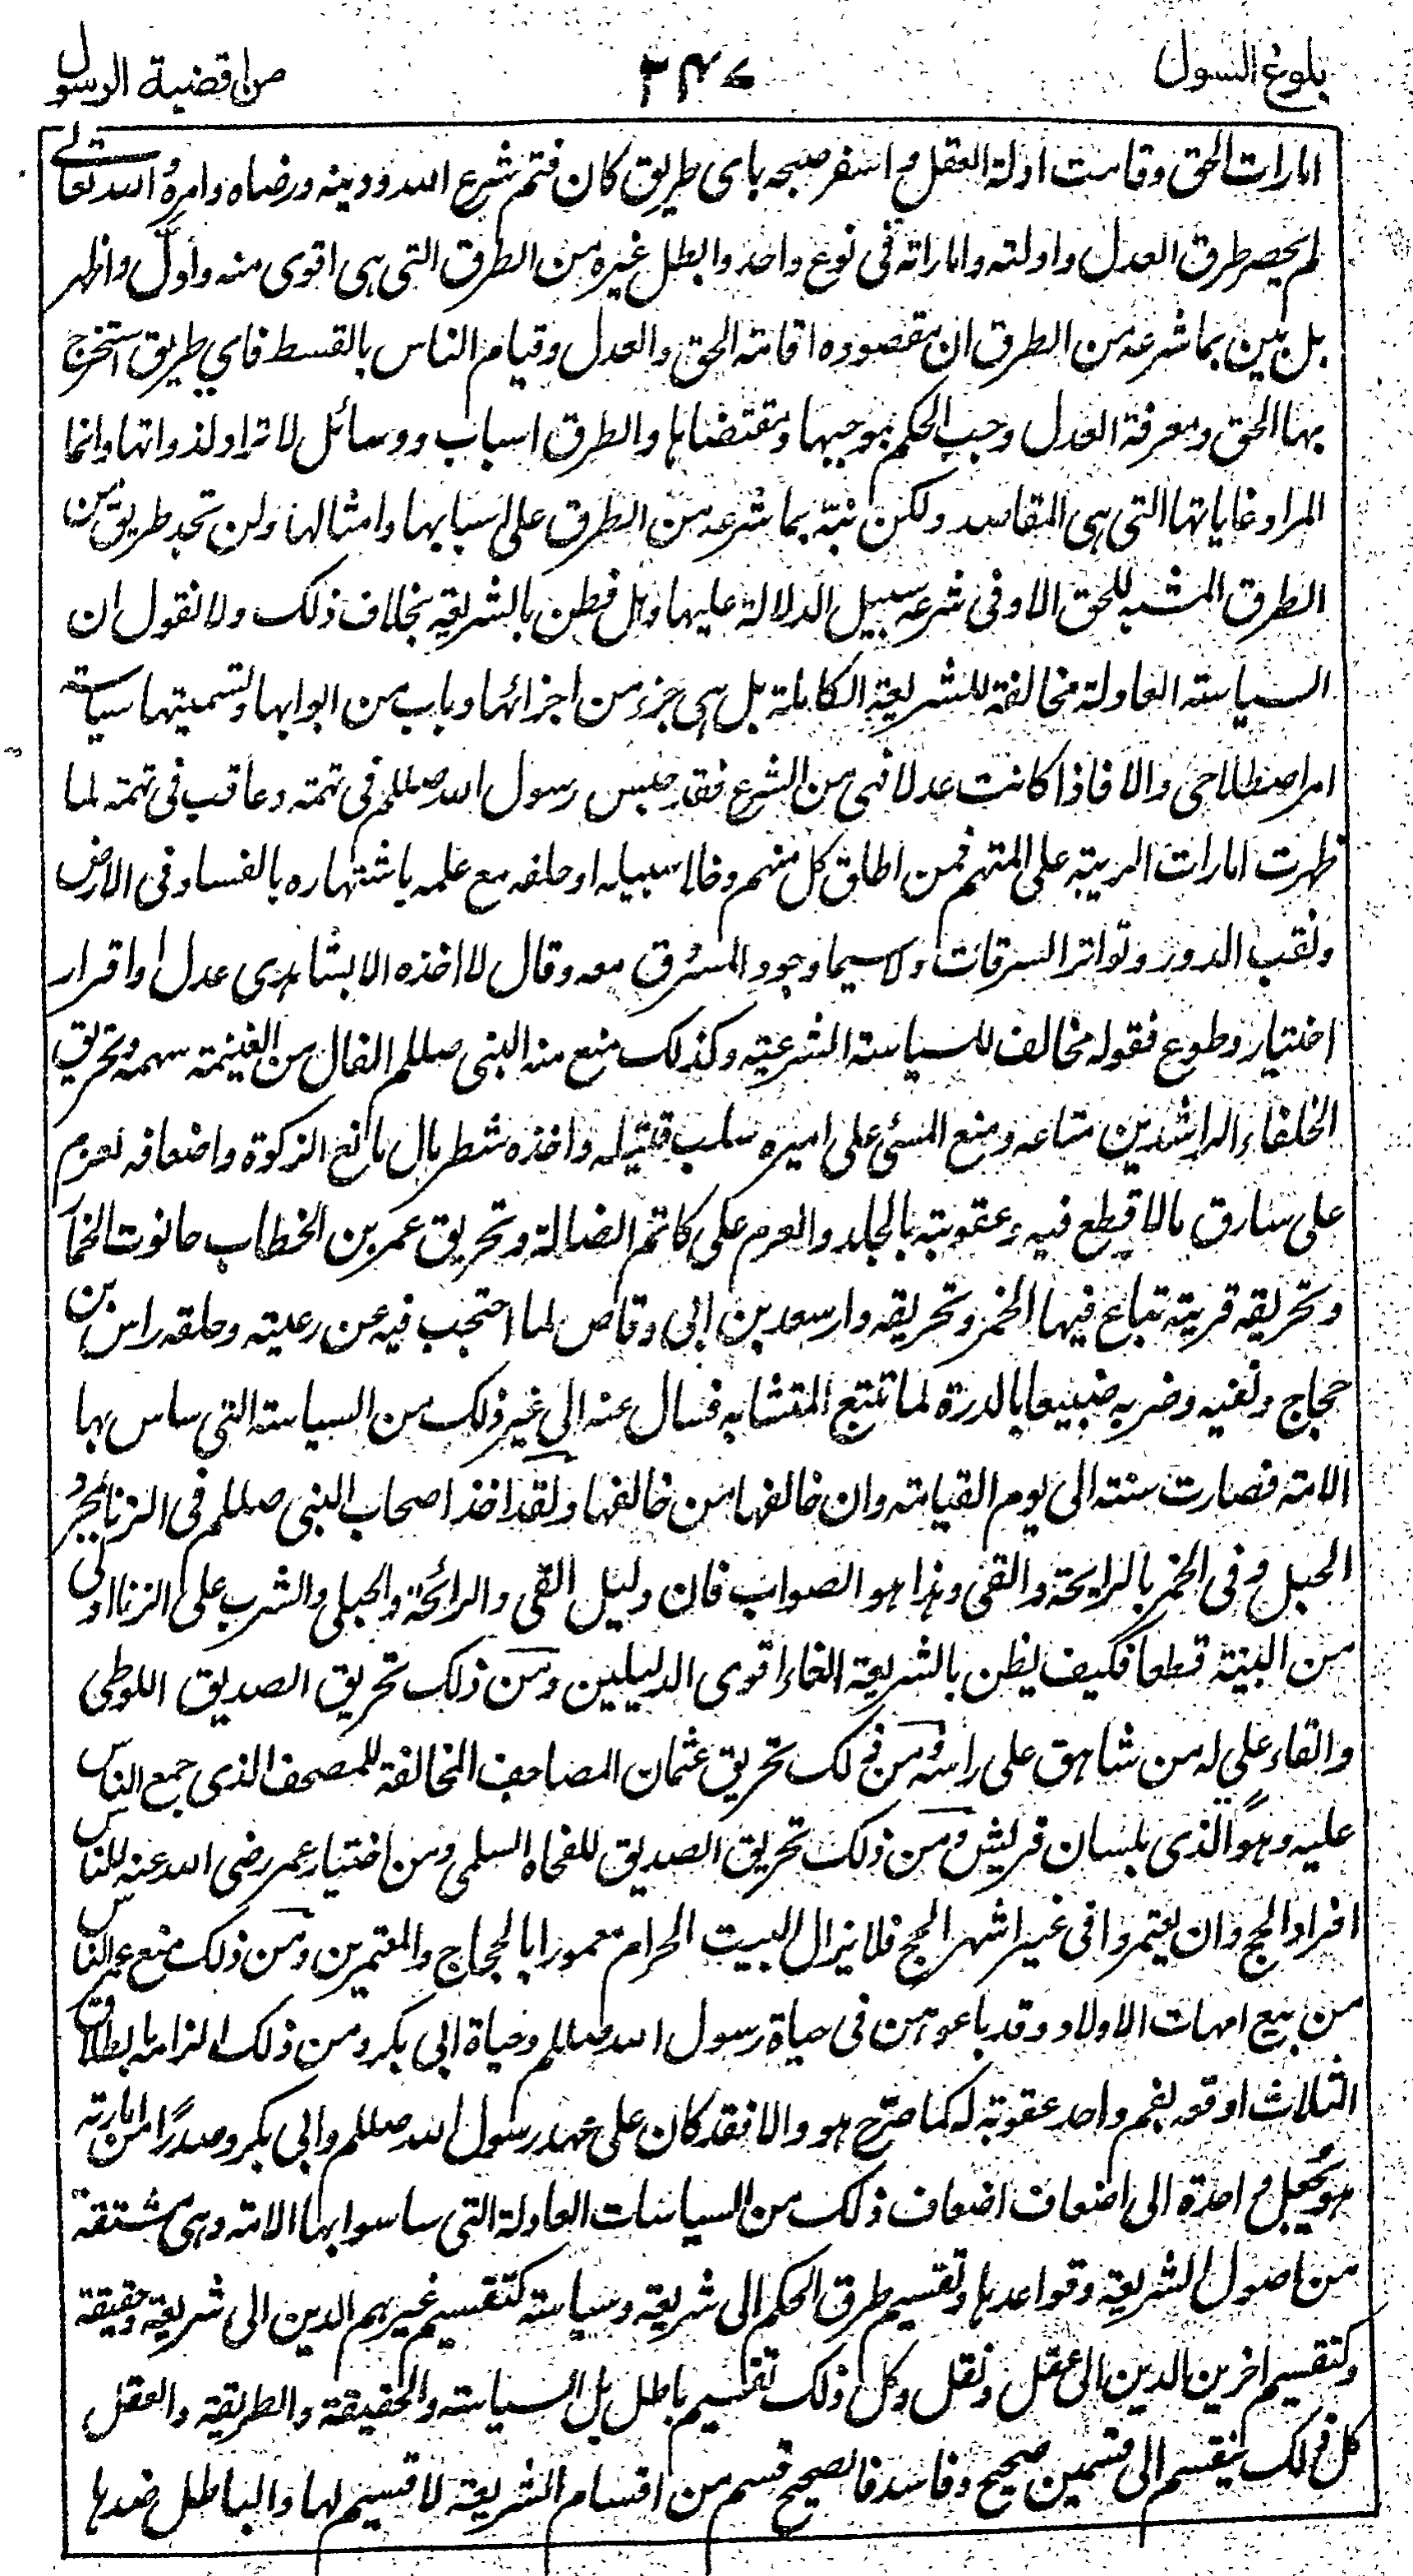 بلوغ السول
٣٤٧
من اقضية الرسول
امارات الحق وقامت ادلة العقل و اسفر صبحه باى طريق كان فثم شرع الله ودينه ورضاه وامره والله تعالى
لم يحصر طرق العدل وادلته واماراته فى نوع واحد وابطل غيره من الطرق التى هى اقوى منه وادل واظهر
بل بين بما شرعه من الطرق ان مقصوده اقامة الحق والعدل وقيام الناس بالقسط فاي طريق استخرج
بها الحق ومعرفة العدل وجب الحكم بموجبها ومقتضاها والطرق اسباب ووسائل لا تراد لذواتها وانما
المراد غاياتها التى هى المقاصد ولكن نبّه بما شرعه من الطرق على اسبابها وامثالها ولن تجد طريق من
الطرق المثبتة للحق الا وفى شرعه سبيل الدلالة عليها وهل فطن بالشريعة بخلاف ذلك ولا نقول ان
السياسة العادلة مخالفة للشريعة الكاملة بل هى جزء من اجزائها وباب من ابوابها وتسميتها سياسة
امر اصطلاحى والا فاذا كانت عدلا فهى من الشرع فقد حبس رسول الله صللم فى تهمة وعاقب فى تهمة لما
ظهرت امارات الريبة على المتهم فمن اطلق كل منهم وخلا سبيله او حلفه مع علمه باشتهاره بالفساد فى الارض
ونقب الدور وتواتر السرقات ولا سيما وجود المسرق معه وقال لا اخذه الا بشاهدى عدل او اقرار
اختيار وطوع فقوله مخالف للسياسة الشرعية وكذلك منع منه النبى صللم الغال من الغنيمة سهمه وتحريق
الخلفاء الراشدين متاعه ومنع المسئى على اميره سلب قتيله واخذه شطر مال مانع الزكوة واضعافه لغرم
على سارق مالا قطع فيه وعقوبته بالجلد والغرم على كاتم الضالة وتحريق عمر بن الخطاب حانوت الخمار
وتحريقه قرية تباع فيها الخمر وتحريقه دار سعد بن ابى وقاص لما احتجب فيه عن رعيته وحلقه راس بن
حجاج ونفيه وضربه ضبيعا بالدرة لما تتبع المتشابه فسال عنه الى غير ذلك من السياسة التى ساس بها
الامة فصارت سنته الى يوم القيامة وان خالفها من خالفها ولقد اخذ اصحاب النبى صللم فى الزنا بمجرد
الحبل وفى الخمر بالرايحة والقى وهذا هو الصواب فان دليل القى والرائحة والحبلى والشرب على الزنا اولى
من البينة قطعا فكيف يظن بالشريعة الغاء اقوى الدليلين ومن ذلك تحريق الصديق اللوطى
والقاء على له من شاهق على راسه ومن ذلك تحريق عثمان المصاحف المخالفة للمصحف الذى جمع الناس
عليه وهو الذى بلسان قريش ومن ذلك تحريق الصديق للفجاه السلمى ومن اختيار عمر رضى الله عنه للناس
افراد الحج وان يعتمروا فى غير اشهر الحج فلا يزال البيت الحرام معمورا بالحجاج والمعتمرين ومن ذلك منع عمر الناس
من بيع امهات الاولاد وقد باعوهن فى حياة رسول الله صللم وحياة ابى بكر ومن ذلك الزامه بالطلاق
الثلاث اوقعه بفم واحد عقوبة له كما صرّح هو والا فقد كان على عهد رسول الله صللم وابى بكر وصدرًا من امارته
هو يجعل واحدة الى اضعاف اضعاف ذلك من السياسات العادلة التى ساسوا بها الامة وهى مشتقة
من اصول الشريعة وقواعدها وتقسيم طرق الحكم الى شريعة وسياسة كتقسيم غيرهم الدين الى شريعة وحقيقة
وكتقسيم اخرين الدين الى عقل ونقل وكل ذلك تقسيم باطل بل السياسة والحقيقة والطريقة والعقل
كل ذلك ينقسم الى قسمين صحيح وفاسد فالصحيح قسم من اقسام الشريعة لا قسيم لها والباطل ضدها